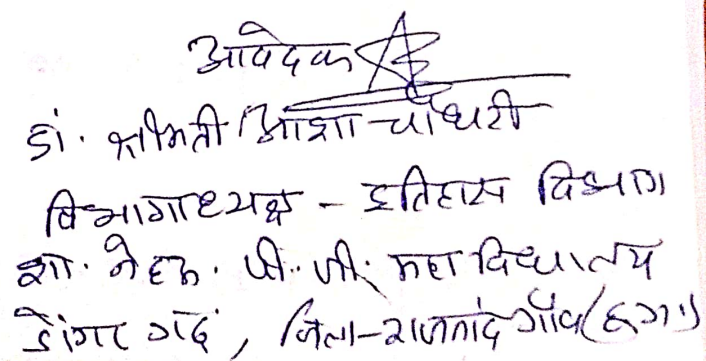 आवेदक
डॉ. श्रीमती आशा चौधरी
विभागाध्यक्ष - इतिहास विभाग
शा. नेहरू. पी. जी. महाविद्यालय
डोंगरगढ़, जिला-राजनांदगाँव (छ.ग.)